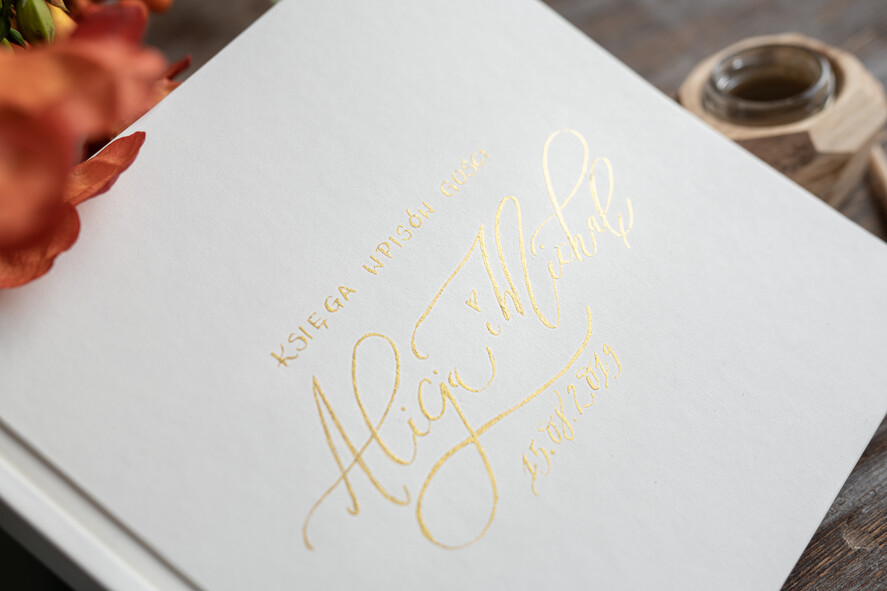 KSIĘGA WPISÓW GOŚCI
Alicja i Michał
15.08.2019